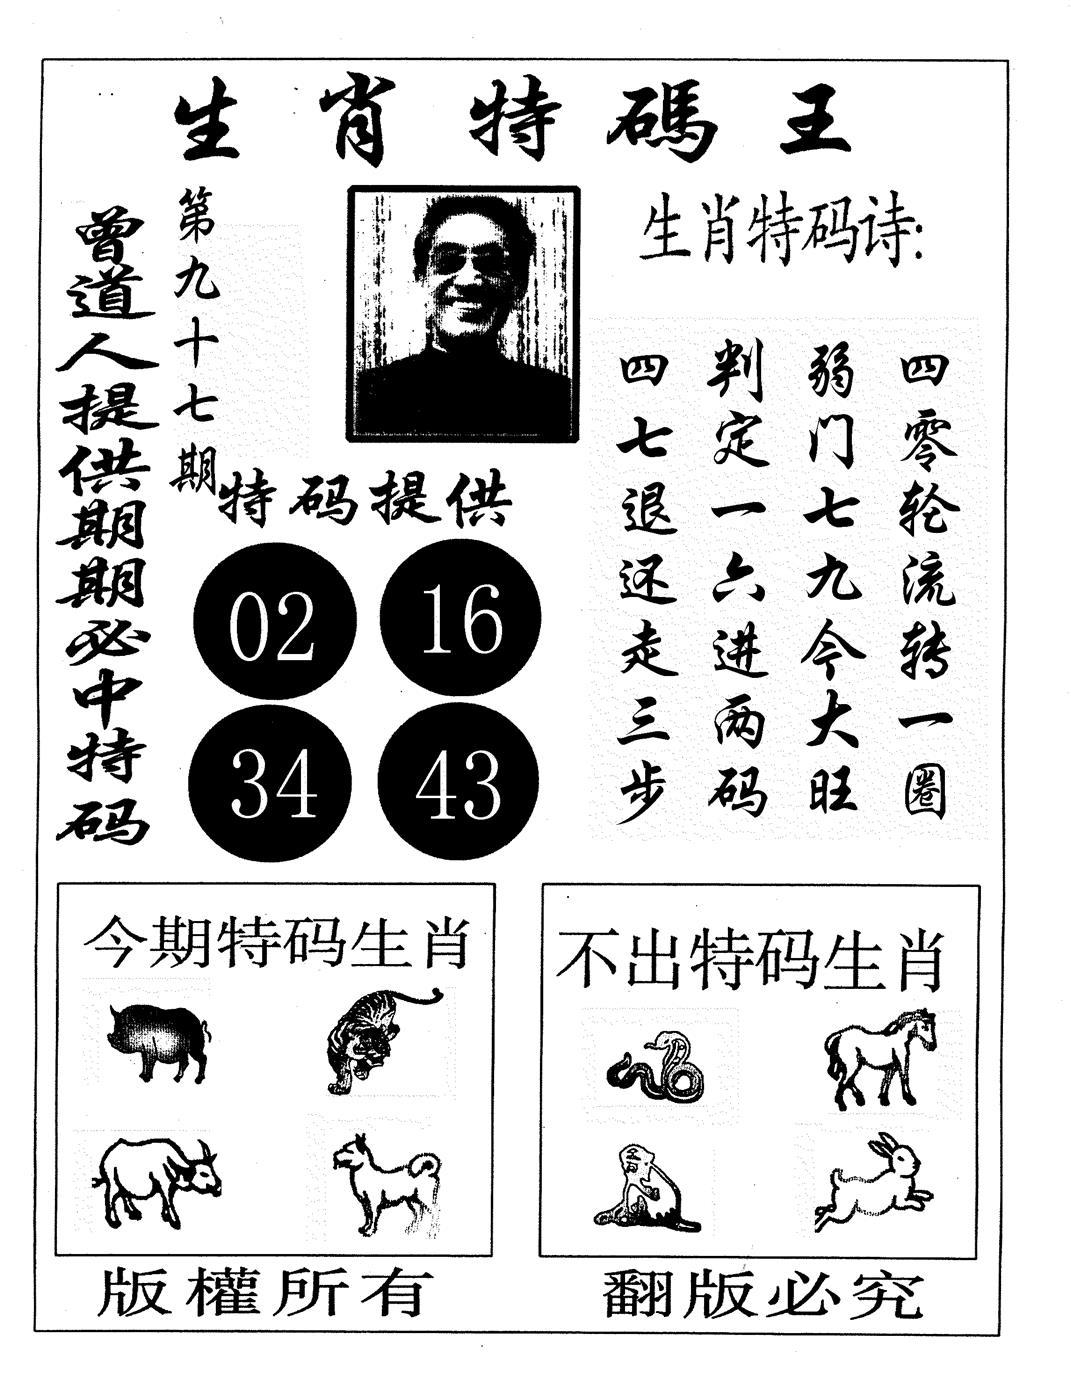 生肖特碼王
曾道人提供期期必中特码
第九十七期
生肖特码诗:
四零轮流转一圈
弱门七九今大旺
判定一六进两码
四七退还走三步
特码提供
02 16
34 43
今期特码生肖
不出特码生肖
版權所有
翻版必究